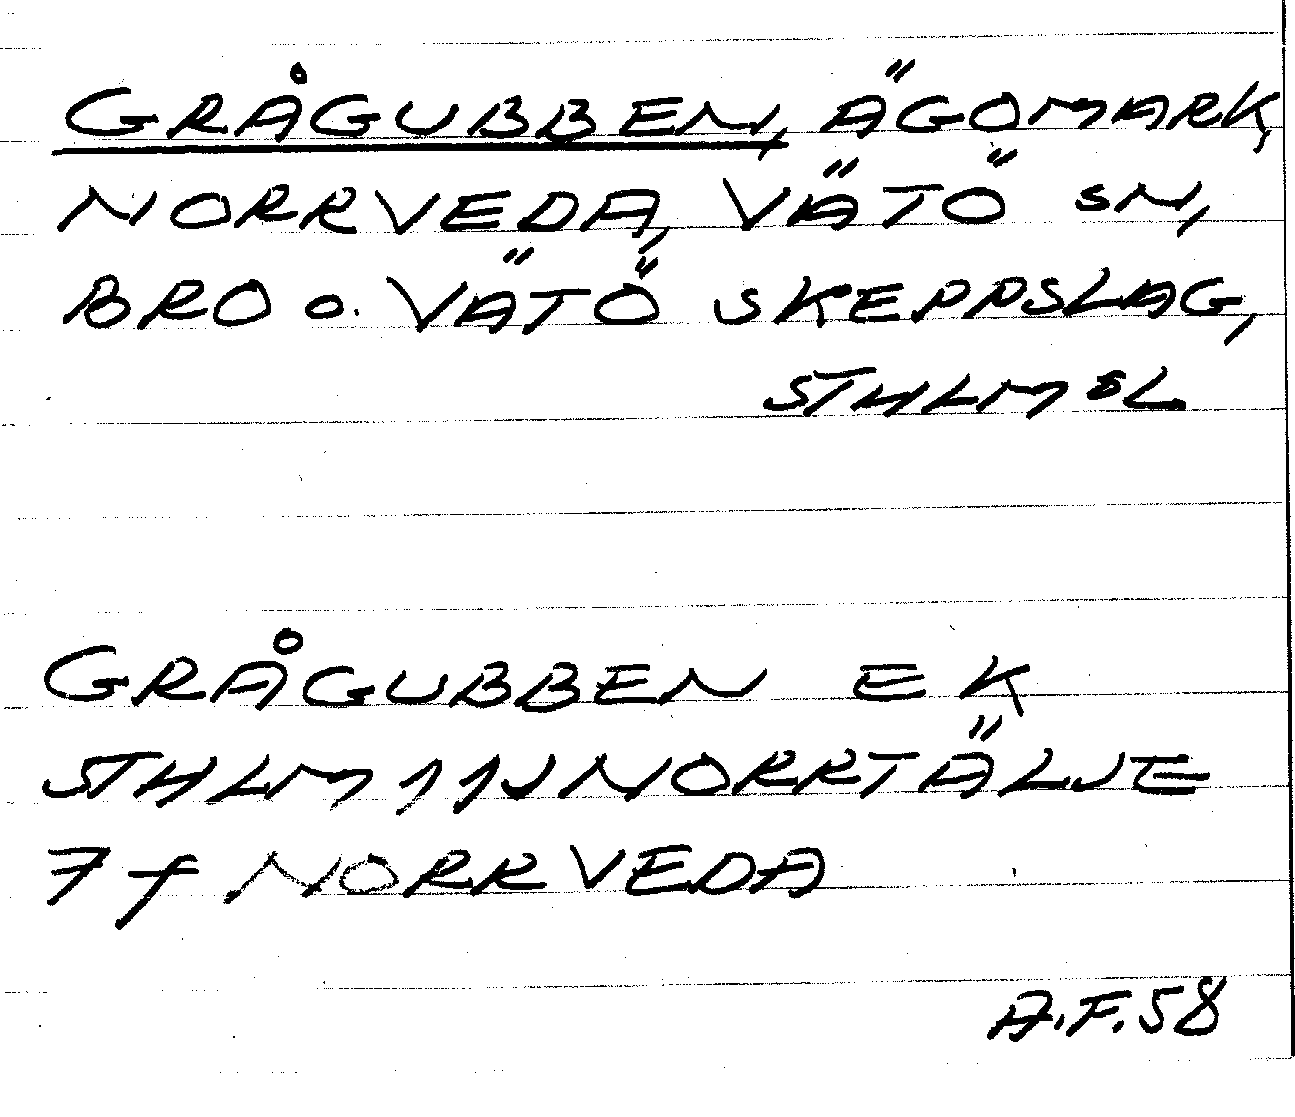 GRÅGUBBEN, ÄGOMARK,
NORRVEDA, VÄTÖ SN,
BRO O. VÄTÖ SKEPPSLAG,
STHLMSL
GRÅGUBBEN EK
STHLM 11J NORRTÄLJE
7f NORRVEDA
A.F.58